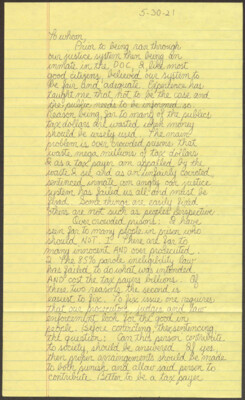 5-30-21
To whom,
Prior to being ran through
our justice system then being an
inmate in the D.O.C., I, like most
good citizens, believed our system to
be fair and adequate. Experience has
taught me that not to be the case and
the public needs to be informed so.
Reason being far to many of the public's
tax dollars are wasted, when money
should be wisely used. The main
problem is over crowded prisons that
waste mega millions of tax dollars.
As a tax payer, am appalled by the
waste & as an unfairly convicted
sentenced inmate am angry our justice
system has failed us all and must be
fixed. Some things are easily fixed
others are not such as people's perspective
Overcrowded prisons: I have
seen far to many people in prison who
should NOT. 1. There are far to
many innocent AND over prosecuted
2. The 85% parole ineligibility law
has failed to do what was intended
AND cost the tax payers billions. Of
these two reasons the second is
easiest to fix. To fix issue one requires
that our prosecutors, judges and law
enforcement look for the good in
people. Before contacting, the sentencing
the question: Can this person contribute
to society, should be answered. If yes,
then proper arrangements should be made
to both punish and allow said person to
contribute. Better to be a tax payer